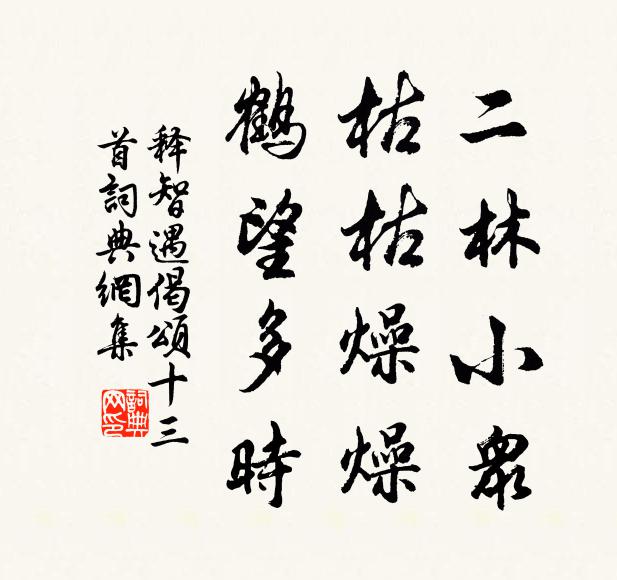 二林小眾
枯枯燥燥
鶴望多時
释智遇偈頌十三
首詞典網集
詞典网印